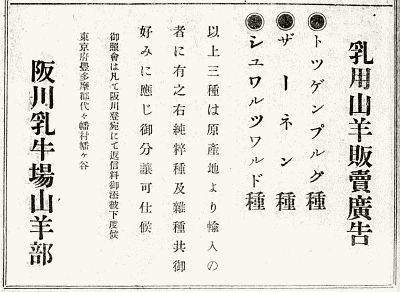 乳用山羊販賣廣告
◉トツゲンブルグ種
◉ザーネン種
◉シユワルツワルド種
以上三種は原産地より輸入の
者に有之右純粹種及雜種共御
好みに應じ御分讓可仕候
御照會は凡て阪川登宛にて返信料御添被下度候
東京府豊多摩郡代々幡村幡ヶ谷
阪川乳牛場山羊部